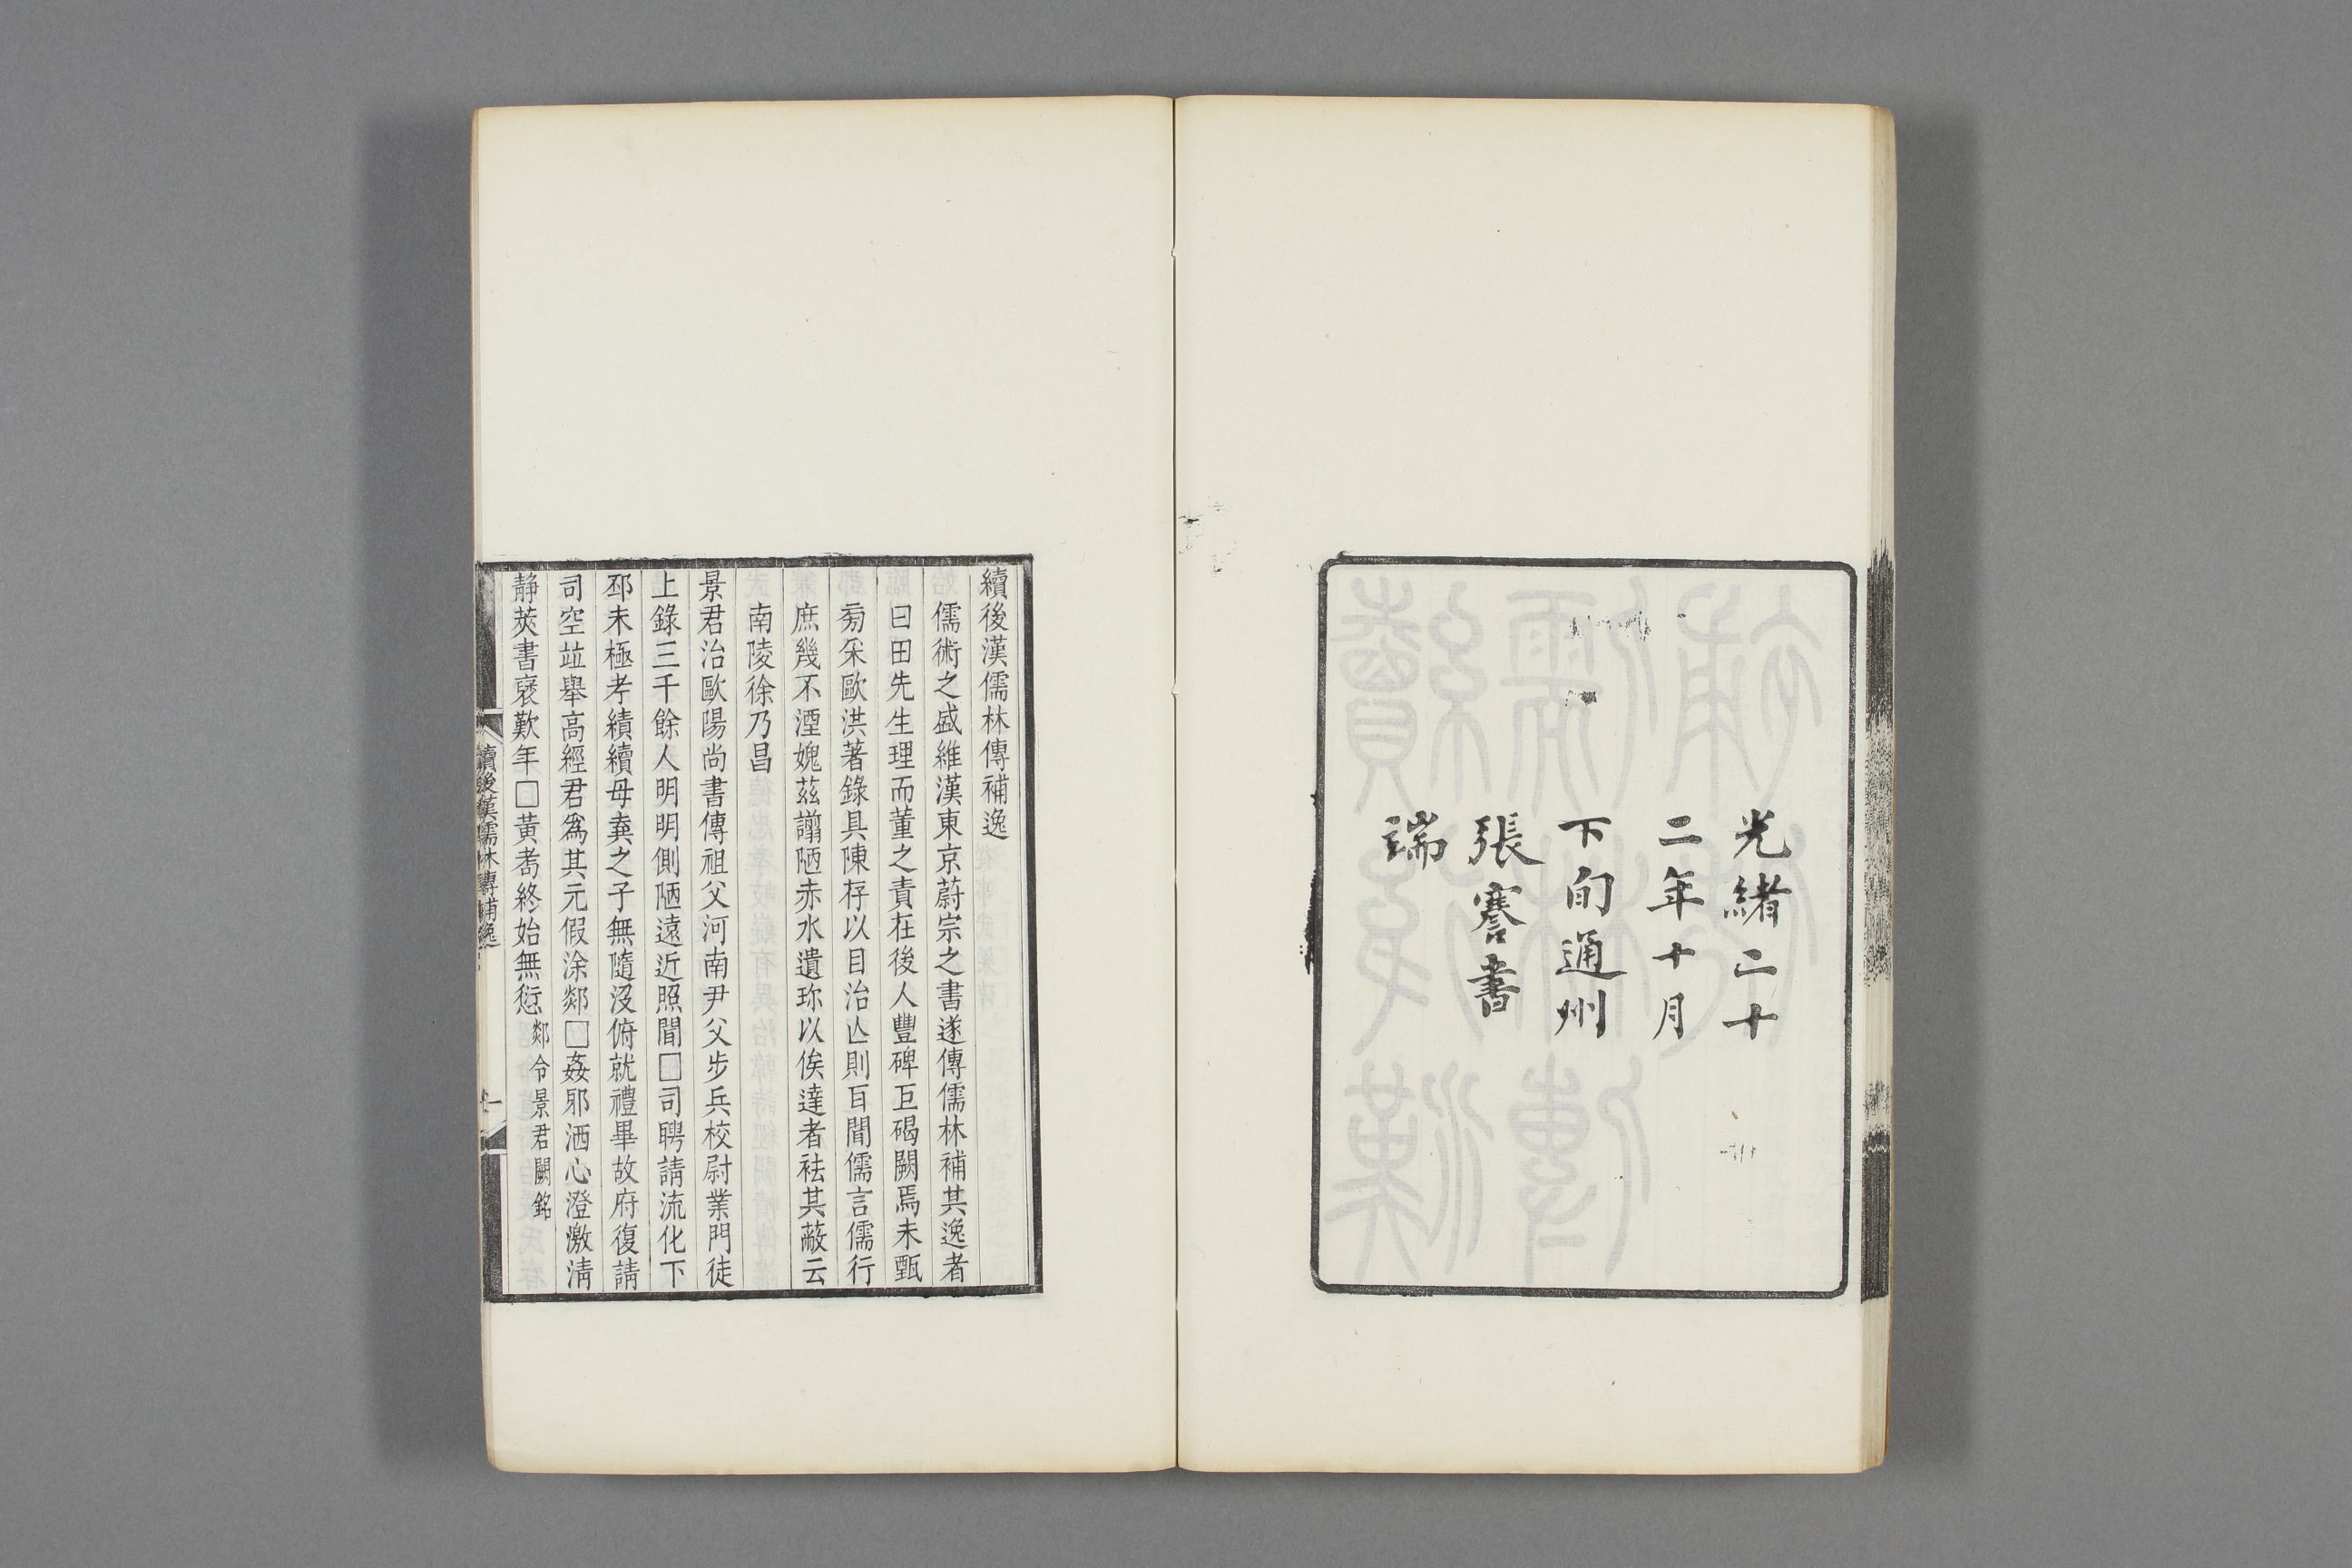 光緒二十
二年十月
下旬通州
張謇書
端
續後漢儒林傳補逸
儒術之盛維漢東京蔚宗之書遂傳儒林補其逸者
曰田先生理而董之責在後人豐碑巨碣闕焉未甄
㫄采歐洪著錄具陳存以目治亾則百聞儒言儒行
庶幾不湮媿茲謭陋赤水遺珎以俟達者袪其蔽云
南陵徐乃昌
景君治歐陽尚書傳祖父河南尹父步兵校尉業門徒
上錄三千餘人明明側陋遠近照聞□司聘請流化下
邳未極考績續母喪之子無隨沒俯就禮畢故府復請
司空竝舉高經君爲其元假涂郯□姦邪洒心澄激清
靜莢書襃歎年□黃耇終始無愆郯令景君闕銘
續後漢儒林傳補逸
一